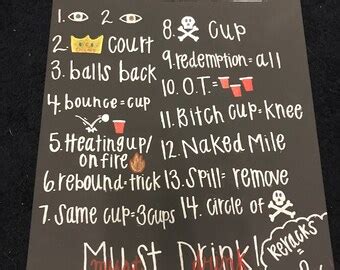 1. 2
2. court
3. balls back
4. bounce=cup
5. Heating up/
on fire
6. rebound=trick
7. Same cup=3cups
8. cup
9. redemption=all
10. O.T.=
11. Bitch cup=knee
12. Naked Mile
13. Spill= remove
14. Circle of
Must Drink!
Reracks=